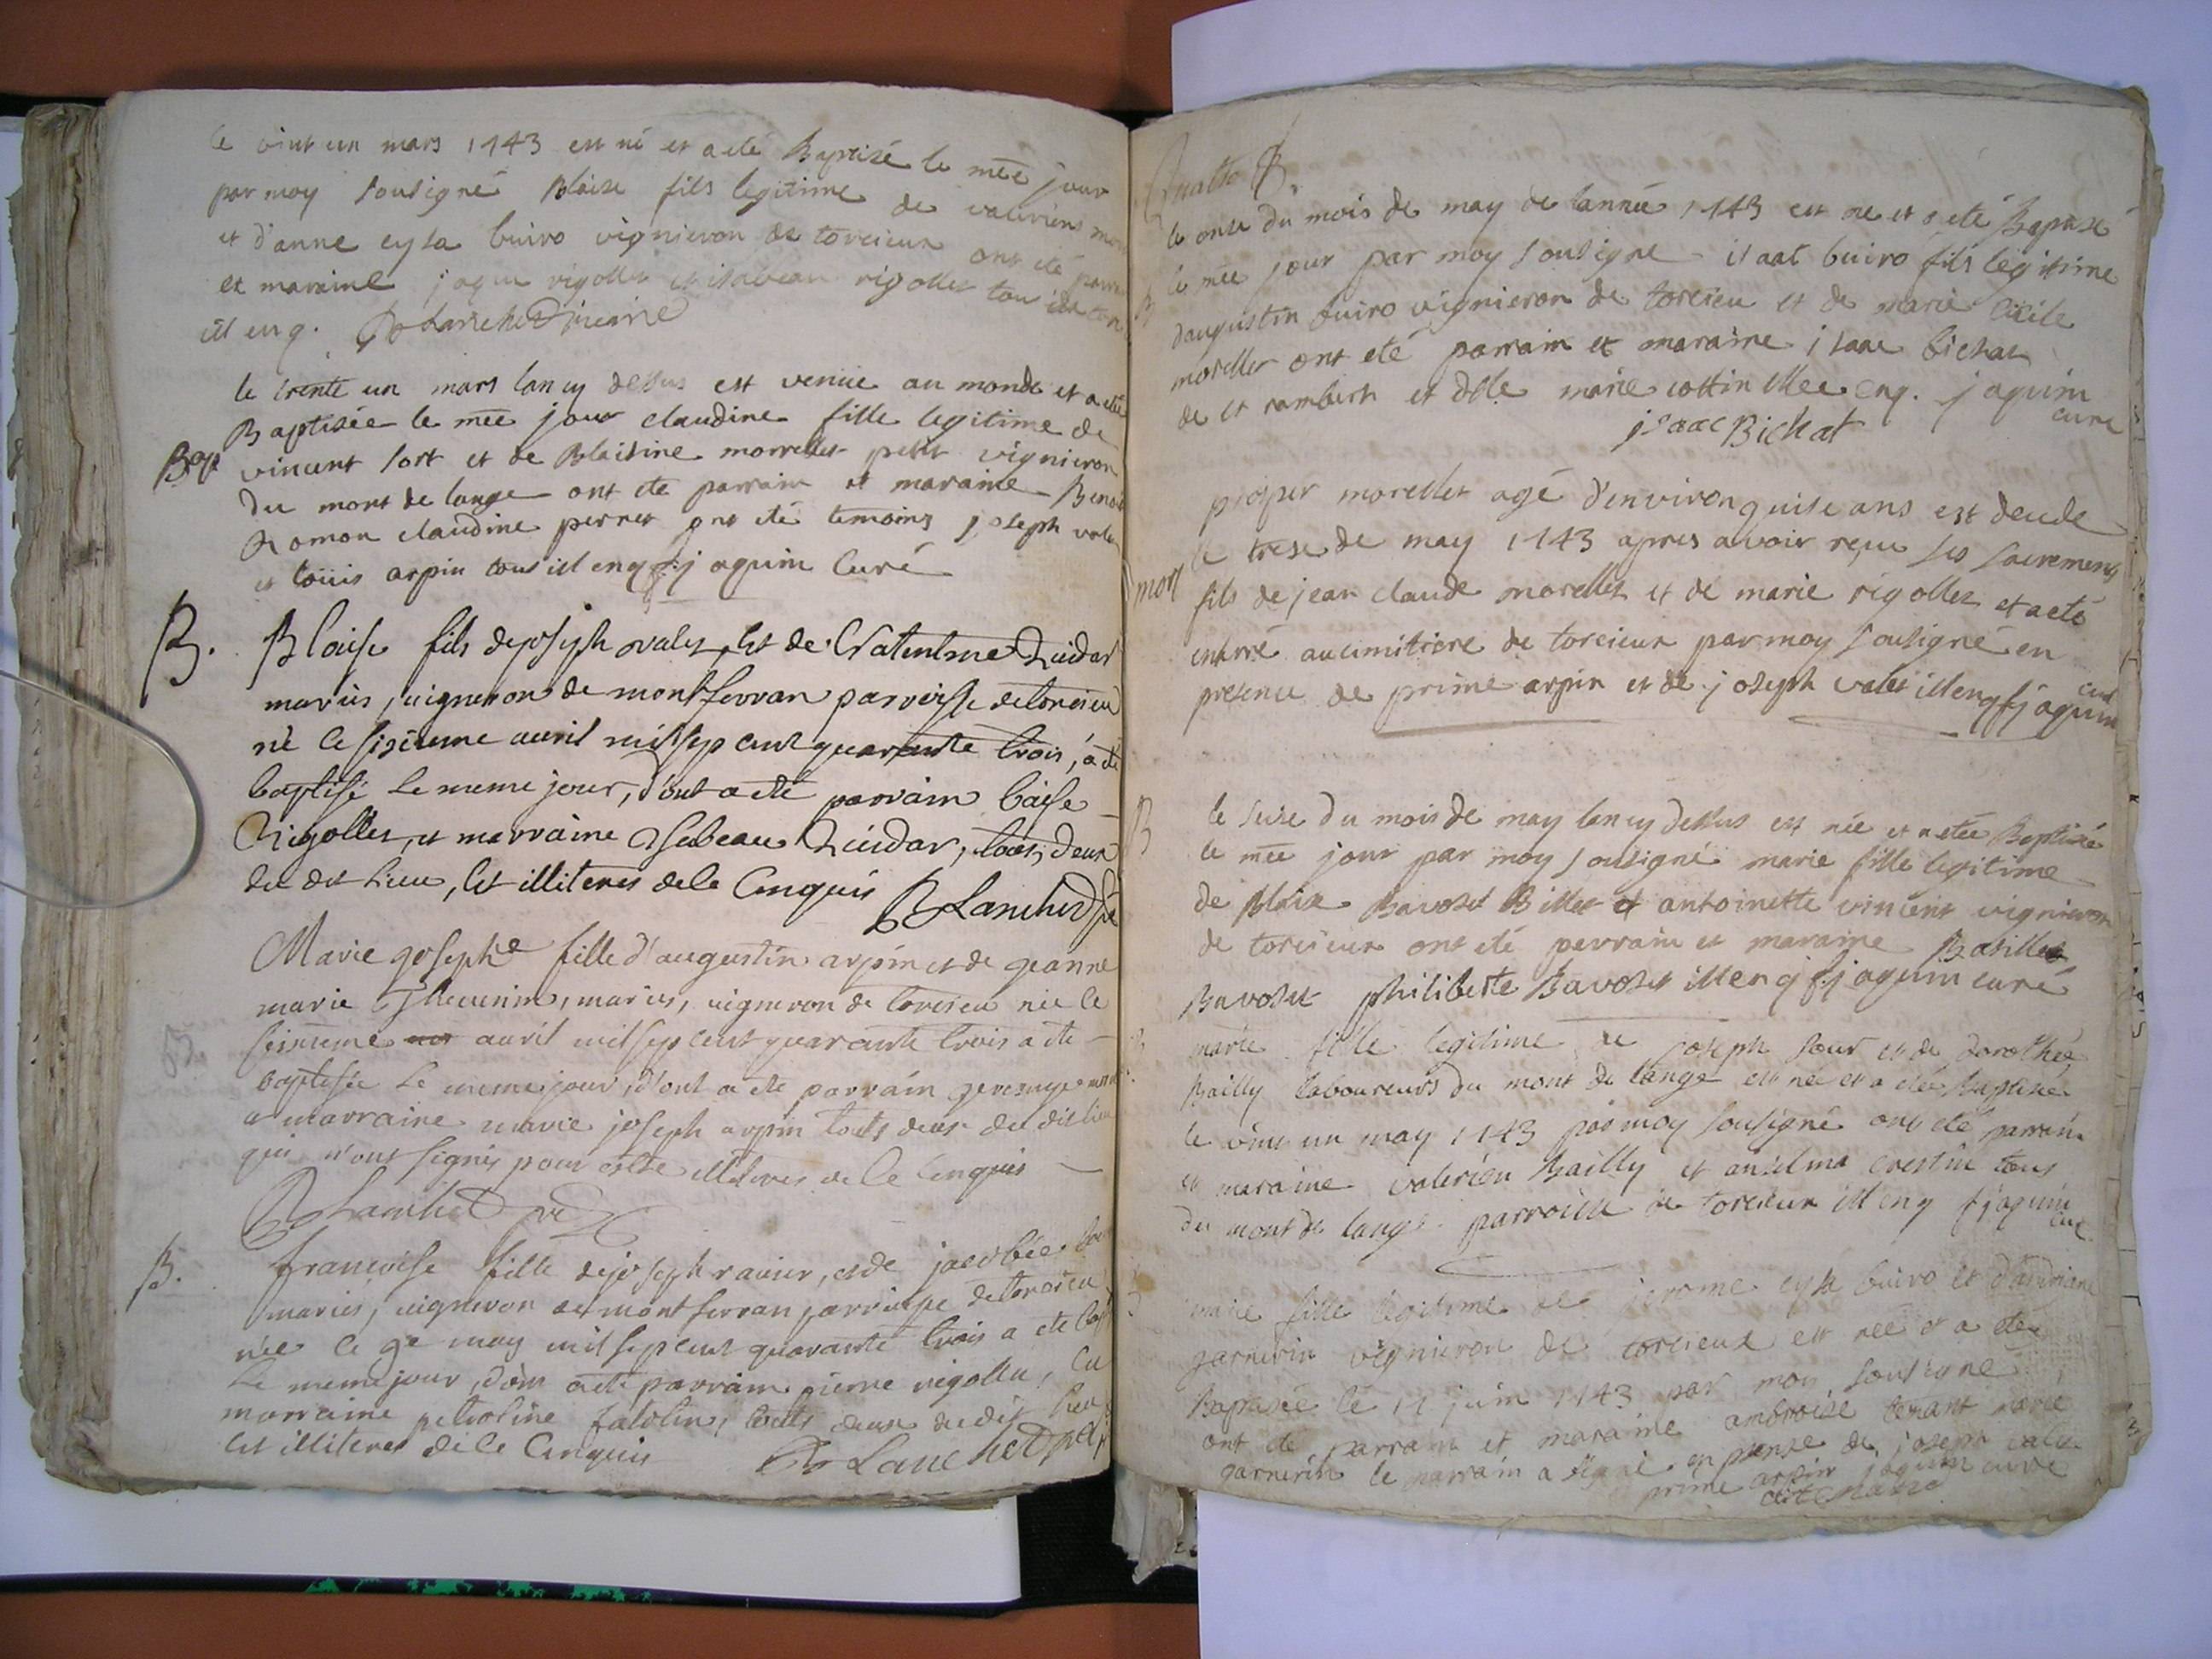 le vint un mars 1743 est né et a eté Baptisé le mee jour
par moy sousigné Blaise fils legitime de
et d'anne eysa buiro vignieron de torcieux ont eté
et maraine jaque rigollet et isabeau rigollet
ill enq. Blanchet
le trente un mars lan cy dessus est venüe au monde et a eté
Baptisée le mee jour claudine fille legitime de
Bap vincent sort et de Blaisine morrellet petit vignieron
du mont de lange ont ete parrain et maraine Benoit
Romon claudine perret ont eté temoins joseph valet
et loüis arpin tous ill enq. f. jaquin Curé
B. Blaise fils de joseph valet, et de
mariés, vigneron de montferran parroisse de torcieu
né le sixieme avril mil sept cent quarante trois, a ete
baptisé le meme jour, d'ont a ete parrain blaise
Rigollet, et marraine isabeau, touts deux
du dit Lieu, et illiteres de ce Enquis Blanchet
Marie josephe fille d'augustin arpin et de jeanne
marie, mariés, vigneron de torcieu née le
sixieme avril mil sept cent quarante trois a ete
baptisée Le meme jour, d'ont a ete parrain
et marraine marie joseph arpin touts deux du dit lieu
qui n'ont signés pour estre illiteres de ce Enquis
Blanchet
B. francoise fille de joseph ravier, et de jacobée
mariés, vigneron de montferran parroisse de torcieu
née le 9e may mil sept cent quarante trois a ete
Le meme jour, dont a ete parrain pierre rigollet, et
marraine petroline, touts deux du dit lieu
et illiteres de ce Enquis Blanchet
Quatre
le onze du mois de may de lannée 1743 est ne et a eté Baptisé
B le mee jour par moy sousigne isaac buiro fils legitime
d'augustin buiro vignieron de torcieu et de marie cicile
morellet ont eté parrain et maraine isaac bichat
de st rambert et dlle marie cottin illee enq. jaquin
curé
isaac Bichat
prosper morellet agé d'environ quise ans est decede
le trese de may 1743 apres avoir reçu ses sacrements
mort fils de jean claude morellet et de marie rigollet et a eté
enterré au cimitiere de torcieux par moy sousigné en
presence de prime arpin et de joseph valet ill enq f jaquin
curé
B le seise du mois de may lan cy dessus est née et a etée Baptisée
le mee jour par moy sousigné marie fille legitime
de Blaise Bavoset Billet et antoinette vincent vignieron
de torcieux ont eté perrain et maraine Basille
Bavoset philiberte Bavoset ill enq f jaquin curé
marie fille legitime de joseph sour et de dorothée
Bailly laboureurs du mont de lange est née et a etée Baptisée
le vint un may 1743 par moy sousigné ont eté parrain
et maraine valerien Bailly et anselma crestin tous
du mont de lange parroisse de torcieux ill enq f jaquin
curé
marie fille legitime de jerome eysa buiro et d'andriane
garnerin vignieron de torcieux est née et a etée
Baptisée le 11 juin 1743 par moy sousigné
ont eté parrain et maraine ambroise tenant marie
garnerin le parrain a signé en presence de joseph valet
prime arpin jaquin curé